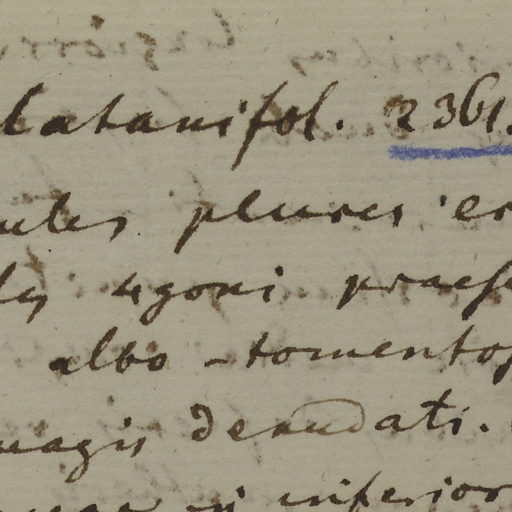 latanifol. 2361.
ules plures er
les 4goni praes
albo-tomentos
magis denudati.
in inferior